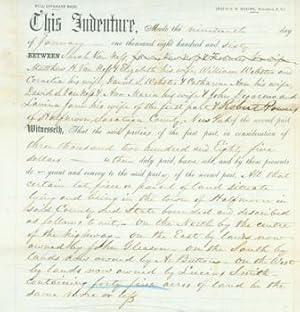 This Indenture, Made the nineteenth day
of January one thousand eight hundred and sixty
BETWEEN
Matthew A. Van and Elizabeth his wife William Webster and
Cornelia his wife, Daniel S. Webster & Catharine Ann his wife,
David A. & Ann Maria his wife & John and
Lavina Jane his wife of the first part & Robert Powers
of Halfmoon, Saratoga County, New York of the second part
Witnesseth, That the said parties of the first part, in consideration of
three thousand two hundred and Eighty five
dollars to them duly paid, have sold, and by these presents
do grant and convey to the said party of the second part, All that
certain lot piece or parcel of land situate
lying and being in the town of Halfmoon in
said County and State bounded and described
as follows to wit. On the North by the centre
of the highway - on the East by lands now
owned by John Gleason - on the South by
lands owned by A. Button - on the West
by lands now owned by Lucius Smith
containing forty five acres of land be the
same more or less